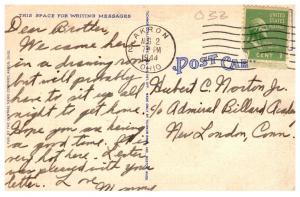 THIS SPACE FOR WRITING MESSAGES
032
Dear Brother,
We came here
in a drawing room
but will probably
have to sit up all
night to get home.
Hope you are having
a good time. It is
very hot here. Lester
was pleased with your
letter. Love
AKRON
AUG 2
7 PM
1944
OHIO
POST CARD
1 CENT 1
Hubert C. Morton, Jr.
c/o Admiral Billard Academy
New London, Conn.